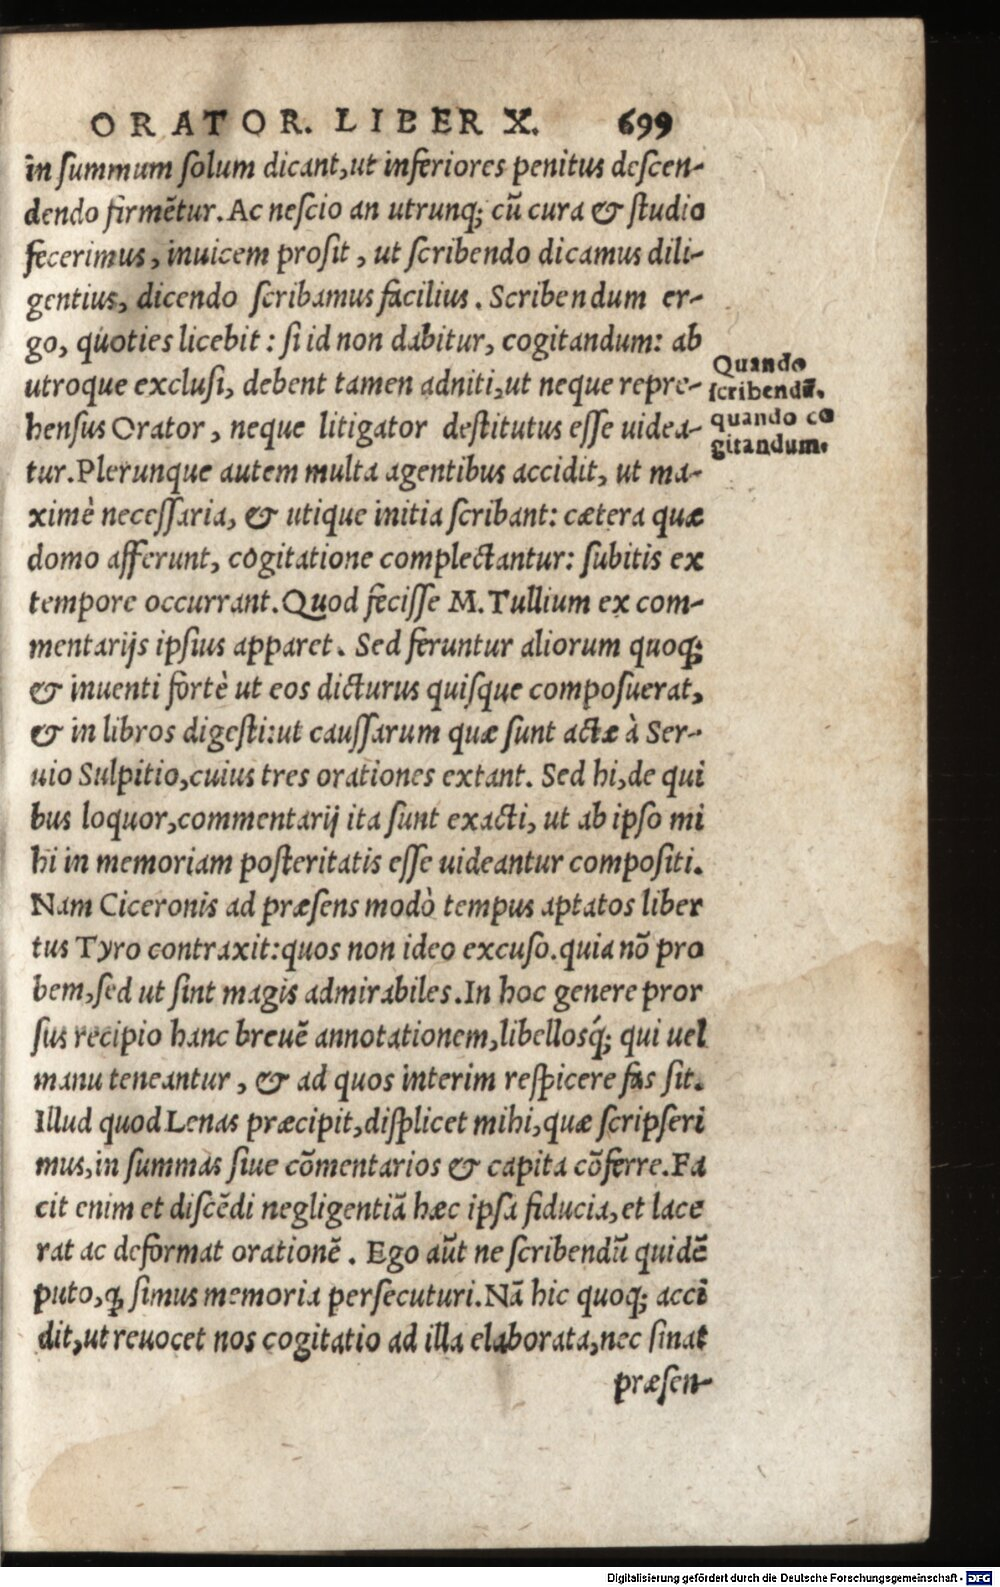 ORATOR. LIBER X. 699
in summum solum dicant,ut inferiores penitus descen-
dendo firmẽtur. Ac nescio an utrunq; cũ cura & studio
fecerimus, inuicem prosit, ut scribendo dicamus dili-
gentius, dicendo scribamus facilius. Scribendum er-
go, quoties licebit: si id non dabitur, cogitandum: ab
utroque exclusi, debent tamen adniti,ut neque repre-
hensus Orator, neque litigator destitutus esse uidea-
tur.Plerunque autem multa agentibus accidit, ut ma-
ximè necessaria, & utique initia scribant: cætera quæ
domo afferunt, cogitatione complectantur: subitis ex
tempore occurrant. Quod fecisse M. Tullium ex com-
mentarijs ipsius apparet. Sed feruntur aliorum quoq;
& inuenti fortè ut eos dicturus quisque composuerat,
& in libros digesti:ut caussarum quæ sunt actæ à Ser-
uio Sulpitio,cuius tres orationes extant. Sed hi,de qui
bus loquor,commentarij ita sunt exacti, ut ab ipso mi
hi in memoriam posteritatis esse uideantur compositi.
Nam Ciceronis ad præsens modò tempus aptatos liber
tus Tyro contraxit:quos non ideo excuso.quia nõ pro
bem,sed ut sint magis admirabiles.In hoc genere pror
sus recipio hanc breuẽ annotationem,libellosq́; qui uel
manu teneantur, & ad quos interim respicere fas sit.
Illud quod Lenas præcipit,displicet mihi,quæ scripseri
mus,in summas siue cõmentarios & capita cõferre.Fa
cit enim et discẽdi negligentiã hæc ipsa fiducia,et lace
rat ac deformat orationẽ. Ego aũt ne scribendũ quidẽ
puto,ꝙ simus memoria persecuturi.Nã hic quoq; acci
dit,ut reuocet nos cogitatio ad illa elaborata,nec sinat
præsen-
Quando
scribendũ.
quando co
gitandum.
Digitalisierung gefördert durch die Deutsche Forschungsgemeinschaft - DFG